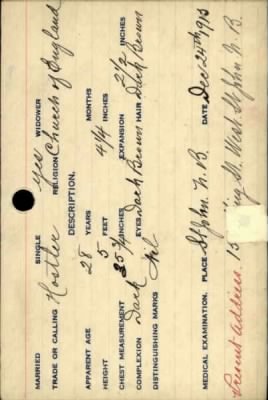 MARRIED SINGLE yes WIDOWER
TRADE OR CALLING Hostler RELIGION Church of England
DESCRIPTION.
APPARENT AGE 28 YEARS MONTHS
HEIGHT 5 FEET 4¼ INCHES
CHEST MEASUREMENT 35¾ INCHES EXPANSION 2½ INCHES
COMPLEXION Dark EYES Dark Brown HAIR Dark Brown
DISTINGUISHING MARKS Nil
MEDICAL EXAMINATION. PLACE St John N.B. DATE Dec 24th 1915
Present address. St. West. St John N.B.